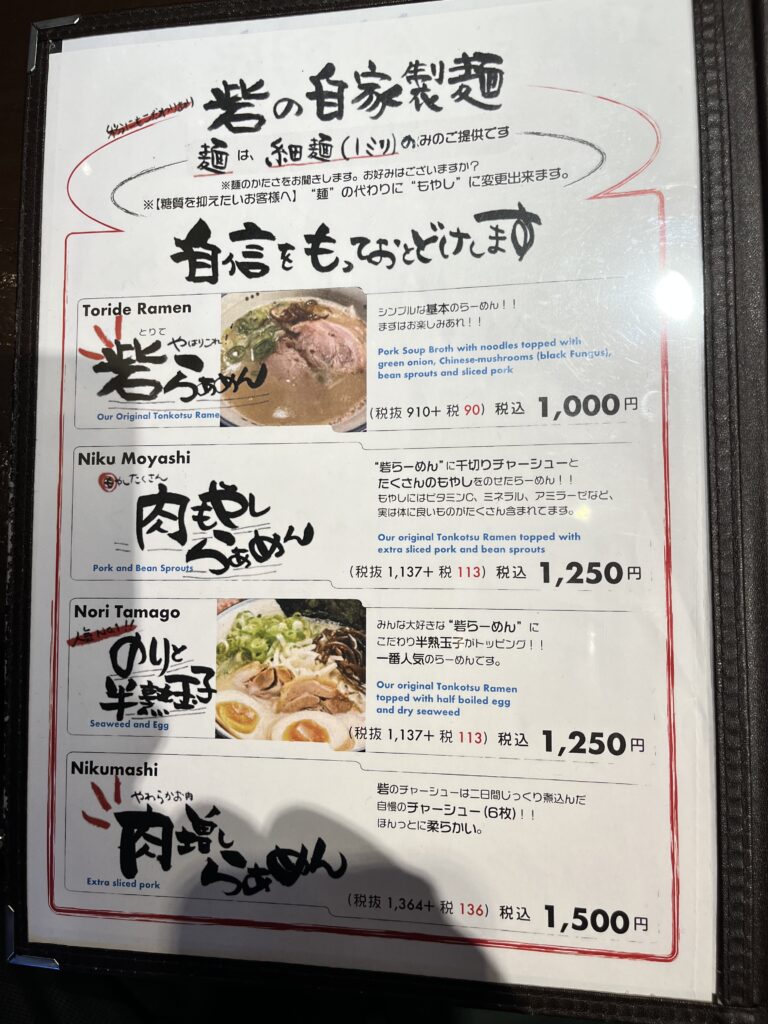 砦の自家製麺
麺は、細麺(1ミリ)のみのご提供です
※麺のかたさをお聞きします。お好みはございますか？
※【糖質を抑えたいお客様へ】 “麺”の代わりに“もやし”に変更出来ます。
自信をもっておとどけします
Toride Ramen
とりで
やはりこれ!
砦らぁめん
Our Original Tonkotsu Rame
シンプルな基本のらーめん！！
まずはお楽しみあれ！！
Pork Soup Broth with noodles topped with
green onion, Chinese-mushrooms (black Fungus),
bean sprouts and sliced pork
(税抜 910+ 税 90) 税込 1,000円
Niku Moyashi
もやしたくさん
肉もやし
らぁめん
Pork and Bean Sprouts
“砦らーめん”に千切りチャーシューと
たくさんのもやしをのせたらーめん！！
もやしにはビタミンC、ミネラル、アミラーゼなど、
実は体に良いものがたくさん含まれてます。
Our original Tonkotsu Ramen topped with
extra sliced pork and bean sprouts
(税抜 1,137+ 税 113) 税込 1,250円
Nori Tamago
人気No1!!
のりと
半熟玉子
Seaweed and Egg
みんな大好きな“砦らーめん”に
こだわり半熟玉子がトッピング！！
一番人気のらーめんです。
Our original Tonkotsu Ramen
topped with half boiled egg
and dry seaweed
(税抜 1,137+ 税 113) 税込 1,250円
Nikumashi
やわらかお肉
肉増し
らぁめん
Extra sliced pork
砦のチャーシューは二日間じっくり煮込んだ
自慢のチャーシュー(6枚)！！
ほんっとに柔らかい。
(税抜 1,364+ 税 136) 税込 1,500円